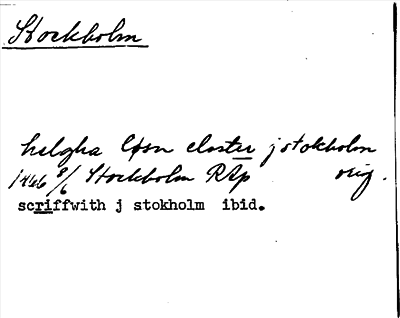 Stockholm
helgha løsn closter j stokholm
1466 8/6 Stockholm RAp orig.
scriffwith j stokholm ibid.